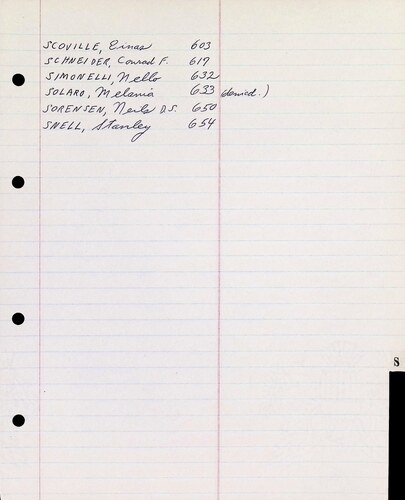 SCOVILLE, Einas 603
SCHNEIDER, Conrad F. 617
SIMONELLI, Nello 632
SOLARO, Melania 633 (denied.)
SORENSEN, Neils D.S. 650
SNELL, Stanley 654
S